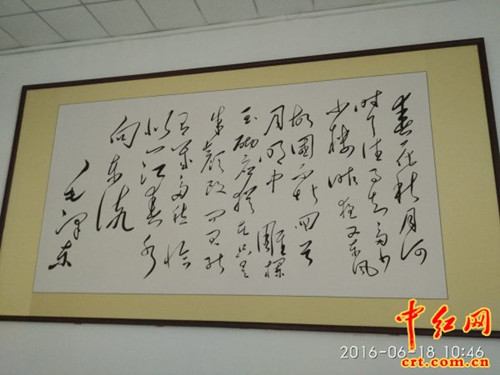 春花秋月何
时了往事知多少
小楼昨夜又东风
故國不堪回首
月明中 雕栏
玉砌应犹在只是
朱颜改问君能
有几多愁恰
似一江春水
向东流
毛泽东
中红网
crt.com.cn
2016-06-18 10:46